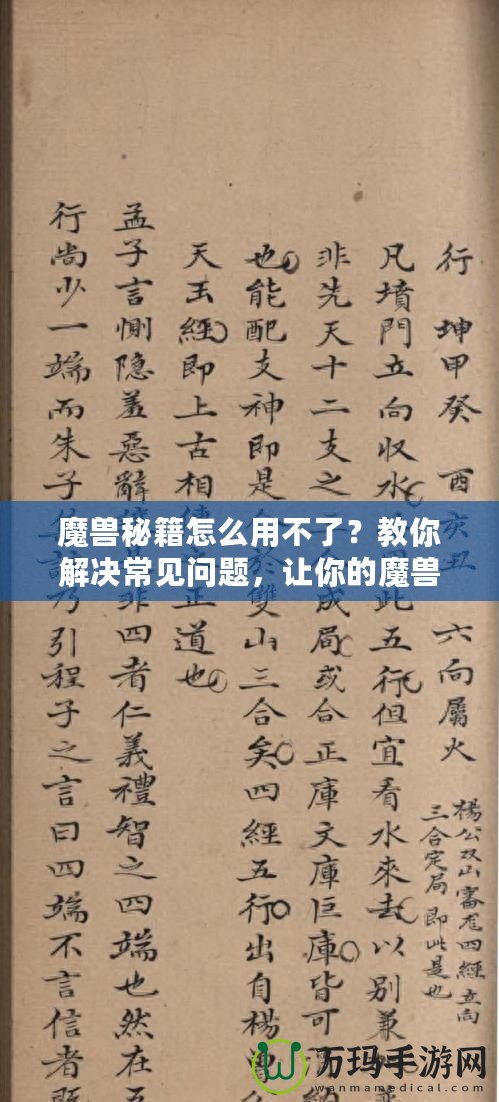 行 坤甲癸 酉亥丑 六向屬火
楊公双山審龙四經立向
三合定局即此是也
凡墳門立向收水此五行但宜看水來去以別兼
非先天十二支之成局或合正庫文庫巨庫皆可
也能配支神即是於雙山三合矣四經五行出自楊
天玉經即上古相正道也
孟子言惻隐羞惡辭非四者仁義禮智之四端也然在五
行尚少一端而朱子乃引程子之言曰四端不言信者
魔兽秘籍怎么用不了？教你
解决常见问题，让你的魔兽
万玛手游网
wanmamedical.com